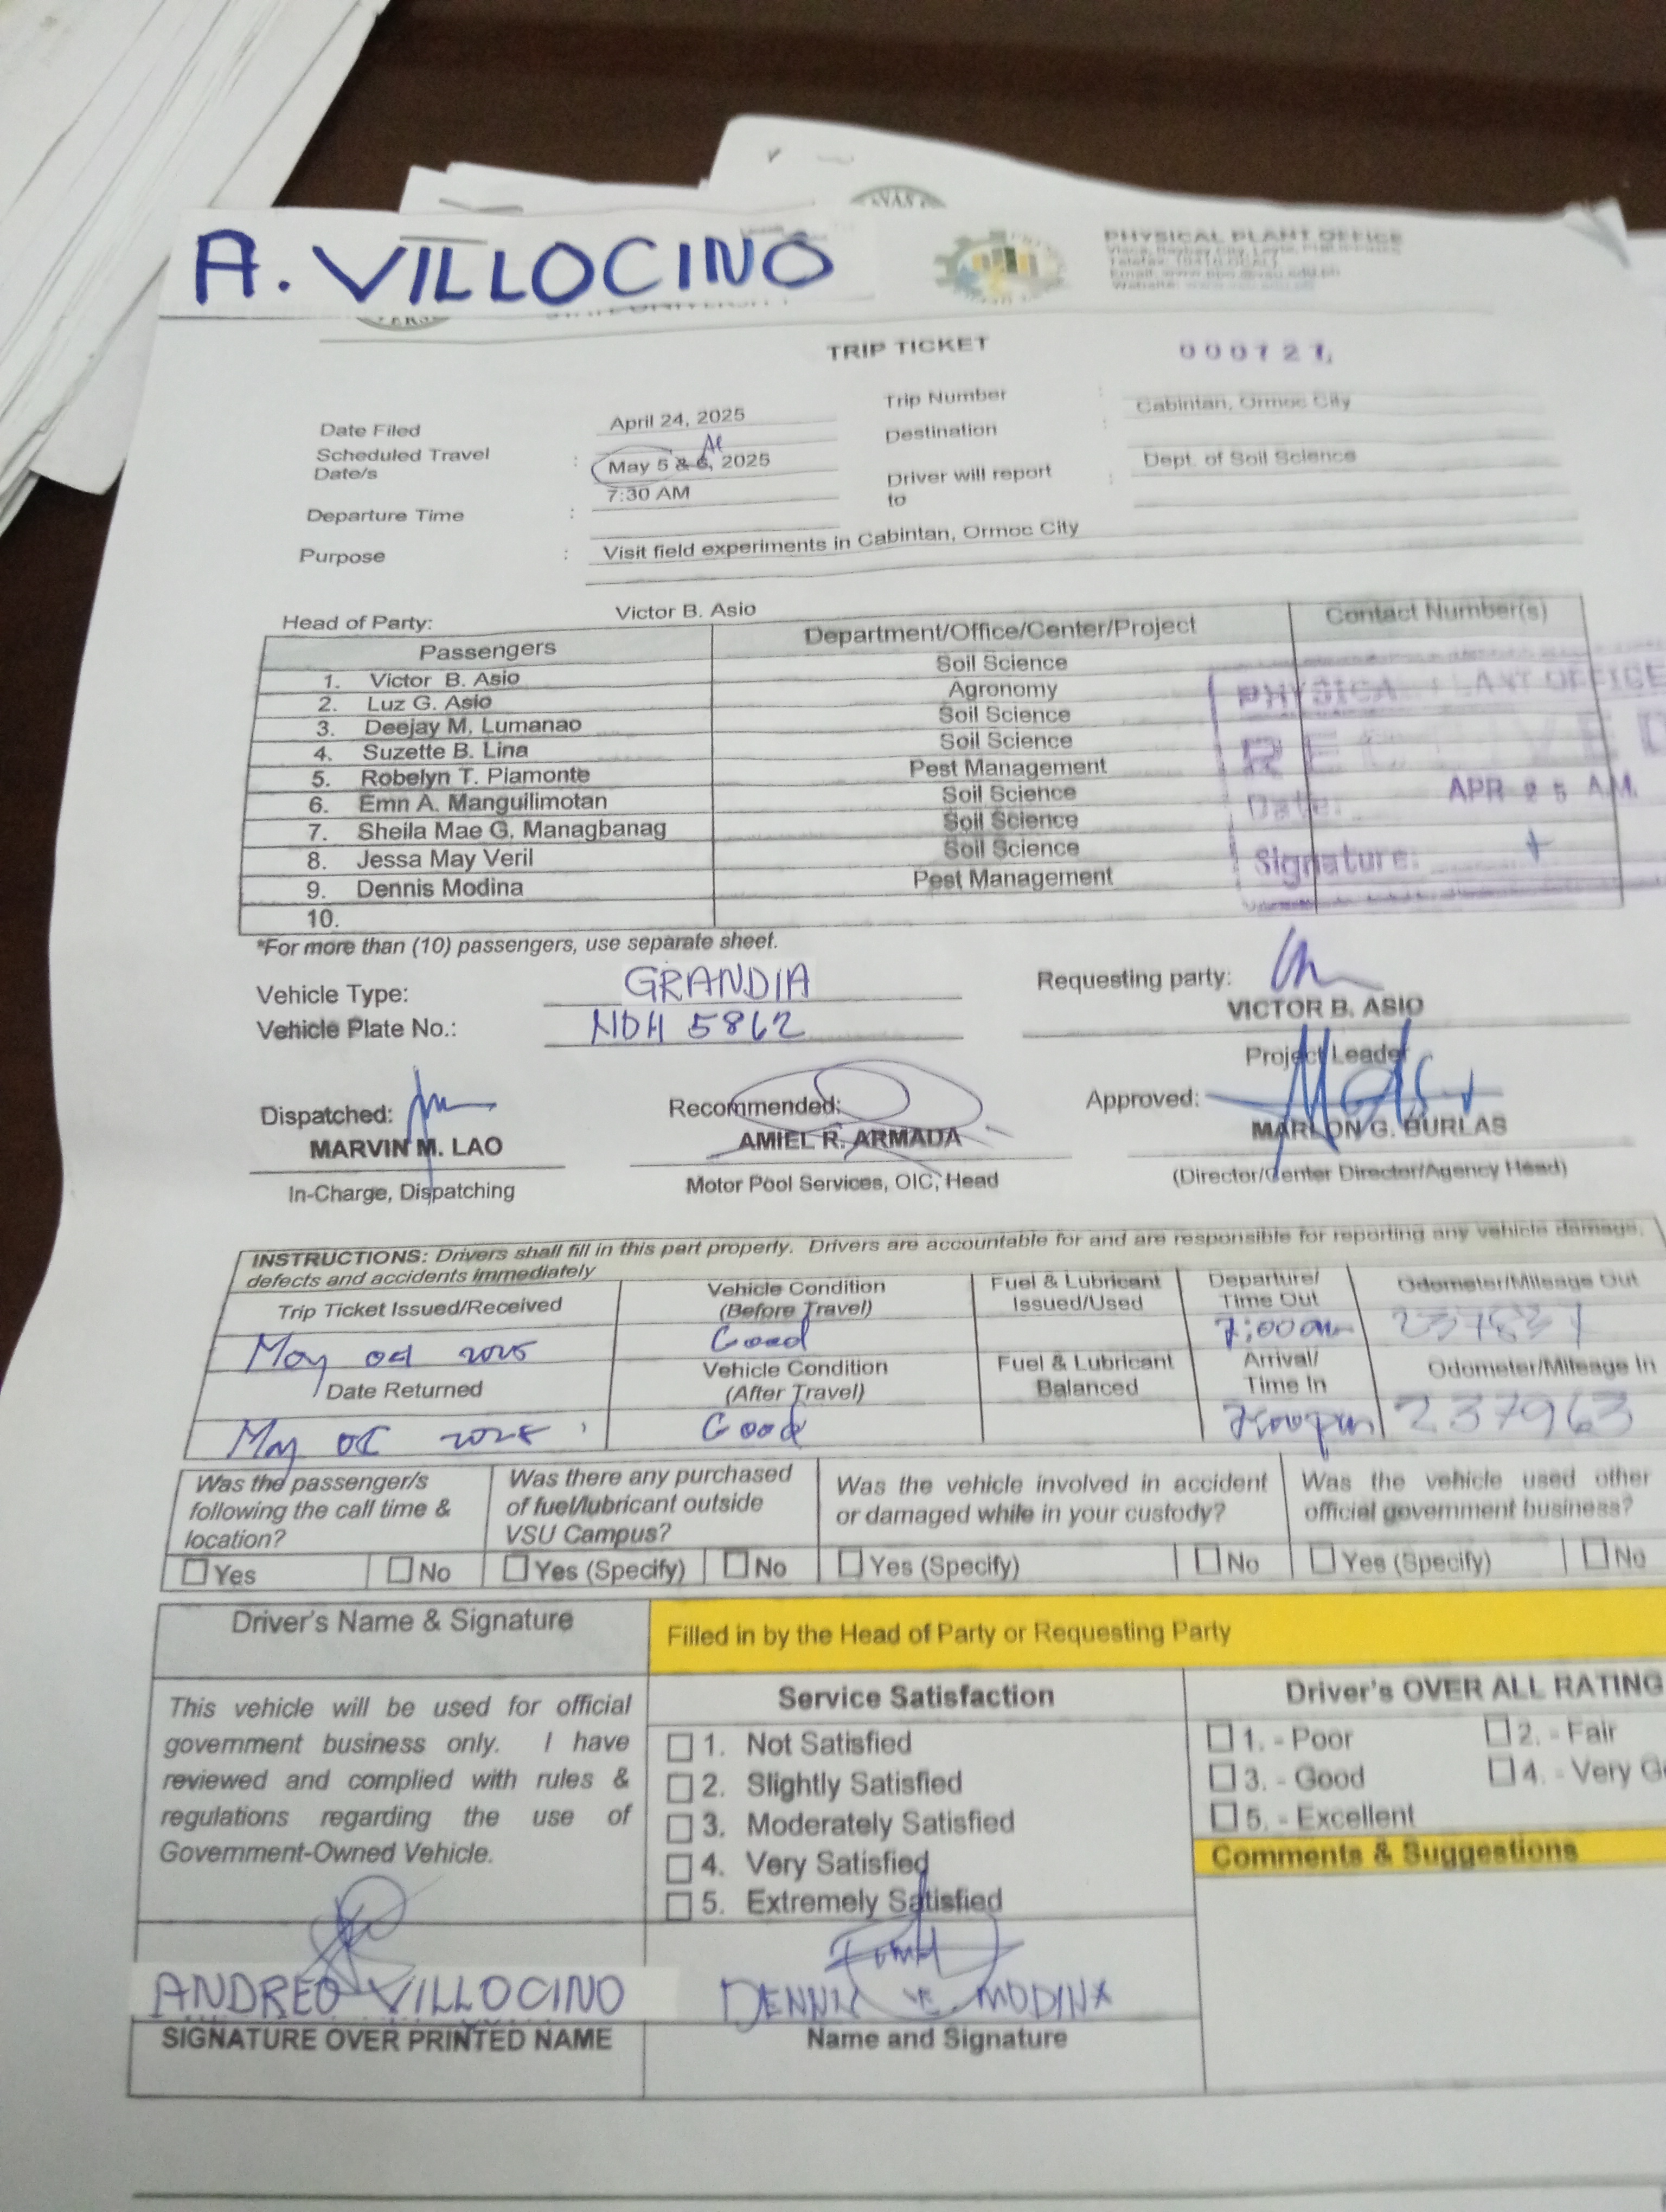 A. VILLOCINO
PHYSICAL PLANT OFFICE
TRIP TICKET
Date Filed April 24, 2025
Trip Number :
Scheduled Travel Date/s : May 5 & 6, 2025
Destination Cabintan, Ormoc City
Departure Time : 7:30 AM
Driver will report to : Dept. of Soil Science
Purpose : Visit field experiments in Cabintan, Ormoc City
Head of Party: Victor B. Asio
Passengers Department/Office/Center/Project Contact Number(s)
1. Victor B. Asio Soil Science
2. Luz G. Asio Agronomy
3. Deejay M. Lumanao Soil Science
4. Suzette B. Lina Soil Science
5. Robelyn T. Piamonte Pest Management
6. Emn A. Manguilimotan Soil Science
7. Sheila Mae G. Managbanag Soil Science
8. Jessa May Veril Soil Science
9. Dennis Modina Pest Management
10.
PHYSICA LANT OFFICE
Date: APR 25 A.M.
Signature:
*For more than (10) passengers, use separate sheet.
Vehicle Type: GRANDIA
Requesting party:
VICTOR B. ASIO
Vehicle Plate No.: NDH 5862
Project Leader
Dispatched: Recommended: Approved:
MARVIN M. LAO AMIEL R. ARMADA MARLON G. BURLAS
In-Charge, Dispatching Motor Pool Services, OIC, Head (Director/Center Director/Agency Head)
INSTRUCTIONS: Drivers shall fill in this part properly. Drivers are accountable for and are responsible for reporting any vehicle damage,
defects and accidents immediately
Trip Ticket Issued/Received Vehicle Condition (Before Travel) Fuel & Lubricant Issued/Used Departure/ Time Out Odometer/Mileage Out
May 2025 Good 7:00am 237837
Date Returned Vehicle Condition (After Travel) Fuel & Lubricant Balanced Arrival/ Time In Odometer/Mileage In
May Good 237963
Was the passenger/s following the call time & location?
Yes No
Was there any purchased of fuel/lubricant outside VSU Campus?
Yes (Specify) No
Was the vehicle involved in accident or damaged while in your custody?
Yes (Specify) No
Was the vehicle used other official government business?
Yes (Specify) No
Driver's Name & Signature
Filled in by the Head of Party or Requesting Party
This vehicle will be used for official
government business only. I have
reviewed and complied with rules &
regulations regarding the use of
Government-Owned Vehicle.
Service Satisfaction
1. Not Satisfied
2. Slightly Satisfied
3. Moderately Satisfied
4. Very Satisfied
5. Extremely Satisfied
Driver's OVER ALL RATING
1. - Poor 2. - Fair
3. - Good 4. - Very G
5. - Excellent
Comments & Suggestions
ANDREO VILLOCINO
SIGNATURE OVER PRINTED NAME
MODINA
Name and Signature